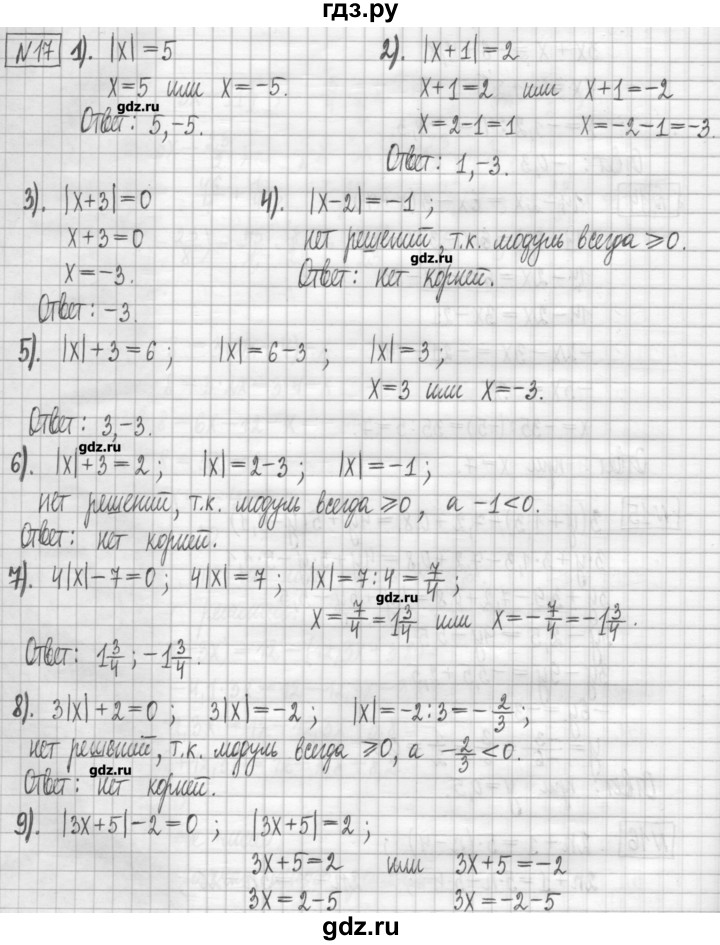 гдз.ру
№17 1). |x| = 5
x = 5 или x = -5.
gdz.ru
Ответ: 5, -5.
2). |x+1| = 2
x+1 = 2 или x+1 = -2
x = 2-1 = 1 x = -2-1 = -3.
Ответ: 1, -3.
3). |x+3| = 0
x+3 = 0
x = -3.
Ответ: -3.
4). |x-2| = -1 ;
нет решений, т.к. модуль всегда ≥ 0.
gdz.ru
Ответ: нет корней.
5). |x| + 3 = 6 ; |x| = 6-3 ; |x| = 3 ;
x = 3 или x = -3.
Ответ: 3, -3.
gdz.ru
6). |x| + 3 = 2 ; |x| = 2-3 ; |x| = -1 ;
нет решений, т.к. модуль всегда ≥ 0, а -1 < 0.
Ответ: нет корней.
7). 4|x| - 7 = 0 ; 4|x| = 7 ; |x| = 7 : 4 = 7/4 ;
gdz.ru
x = 7/4 = 1 3/4 или x = -7/4 = -1 3/4 .
Ответ: 1 3/4 ; -1 3/4 .
8). 3|x| + 2 = 0 ; 3|x| = -2 ; |x| = -2 : 3 = -2/3 ;
нет решений, т.к. модуль всегда ≥ 0, а -2/3 < 0.
gdz.ru
Ответ: нет корней.
9). |3x+5| - 2 = 0 ; |3x+5| = 2 ;
3x+5 = 2 или 3x+5 = -2
3x = 2-5 3x = -2-5
gdz.ru